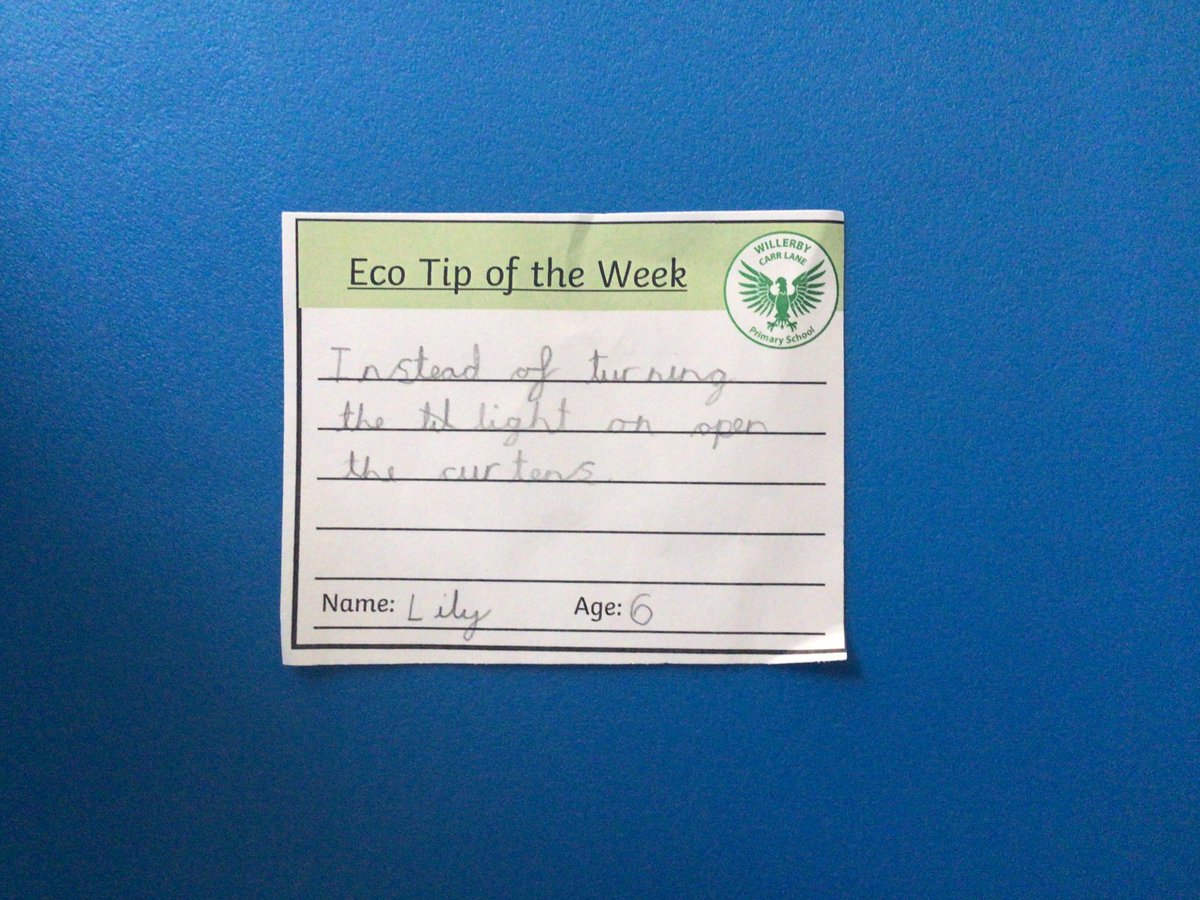 Eco Tip of the Week
WILLERBY
CARR LANE
Primary School
Instead of turning
the light on open
the curtens.
Name: Lily Age: 6